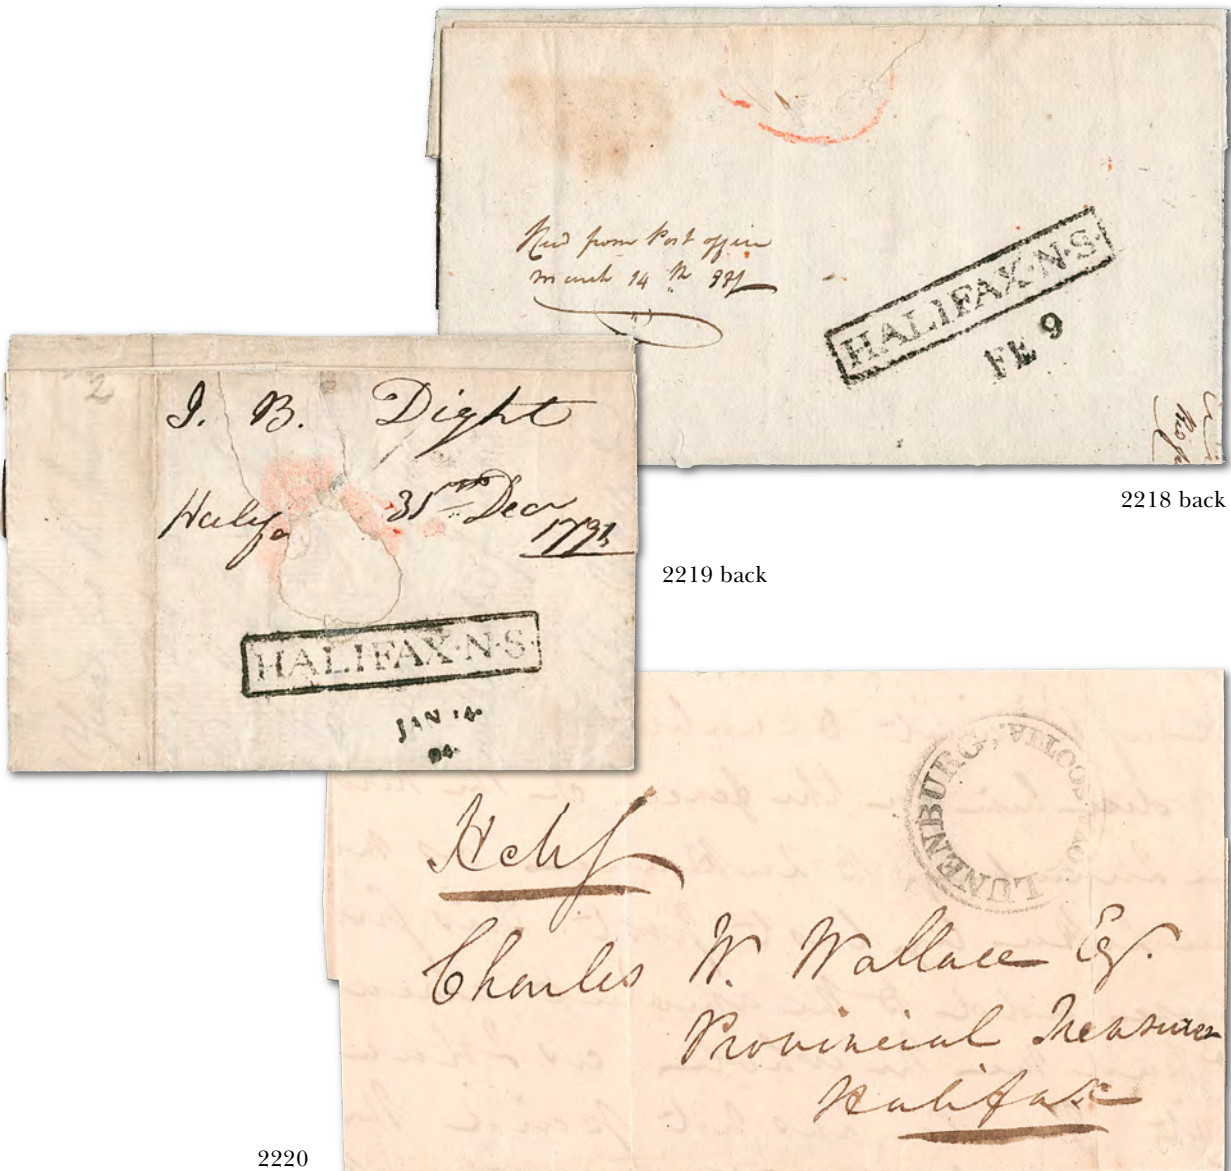 from Post office
march 14 th
HALIFAX·N·S·
FE 9
2218 back
2
J. B. Dight
Halifa 31st Decr
1793
HALIFAX·N·S·
JAN 14
94
2219 back
LUNENBURG, NOVA SCOTIA.
Charles W. Wallace Esqr.
Provincial Treasurer
Halifax
2220